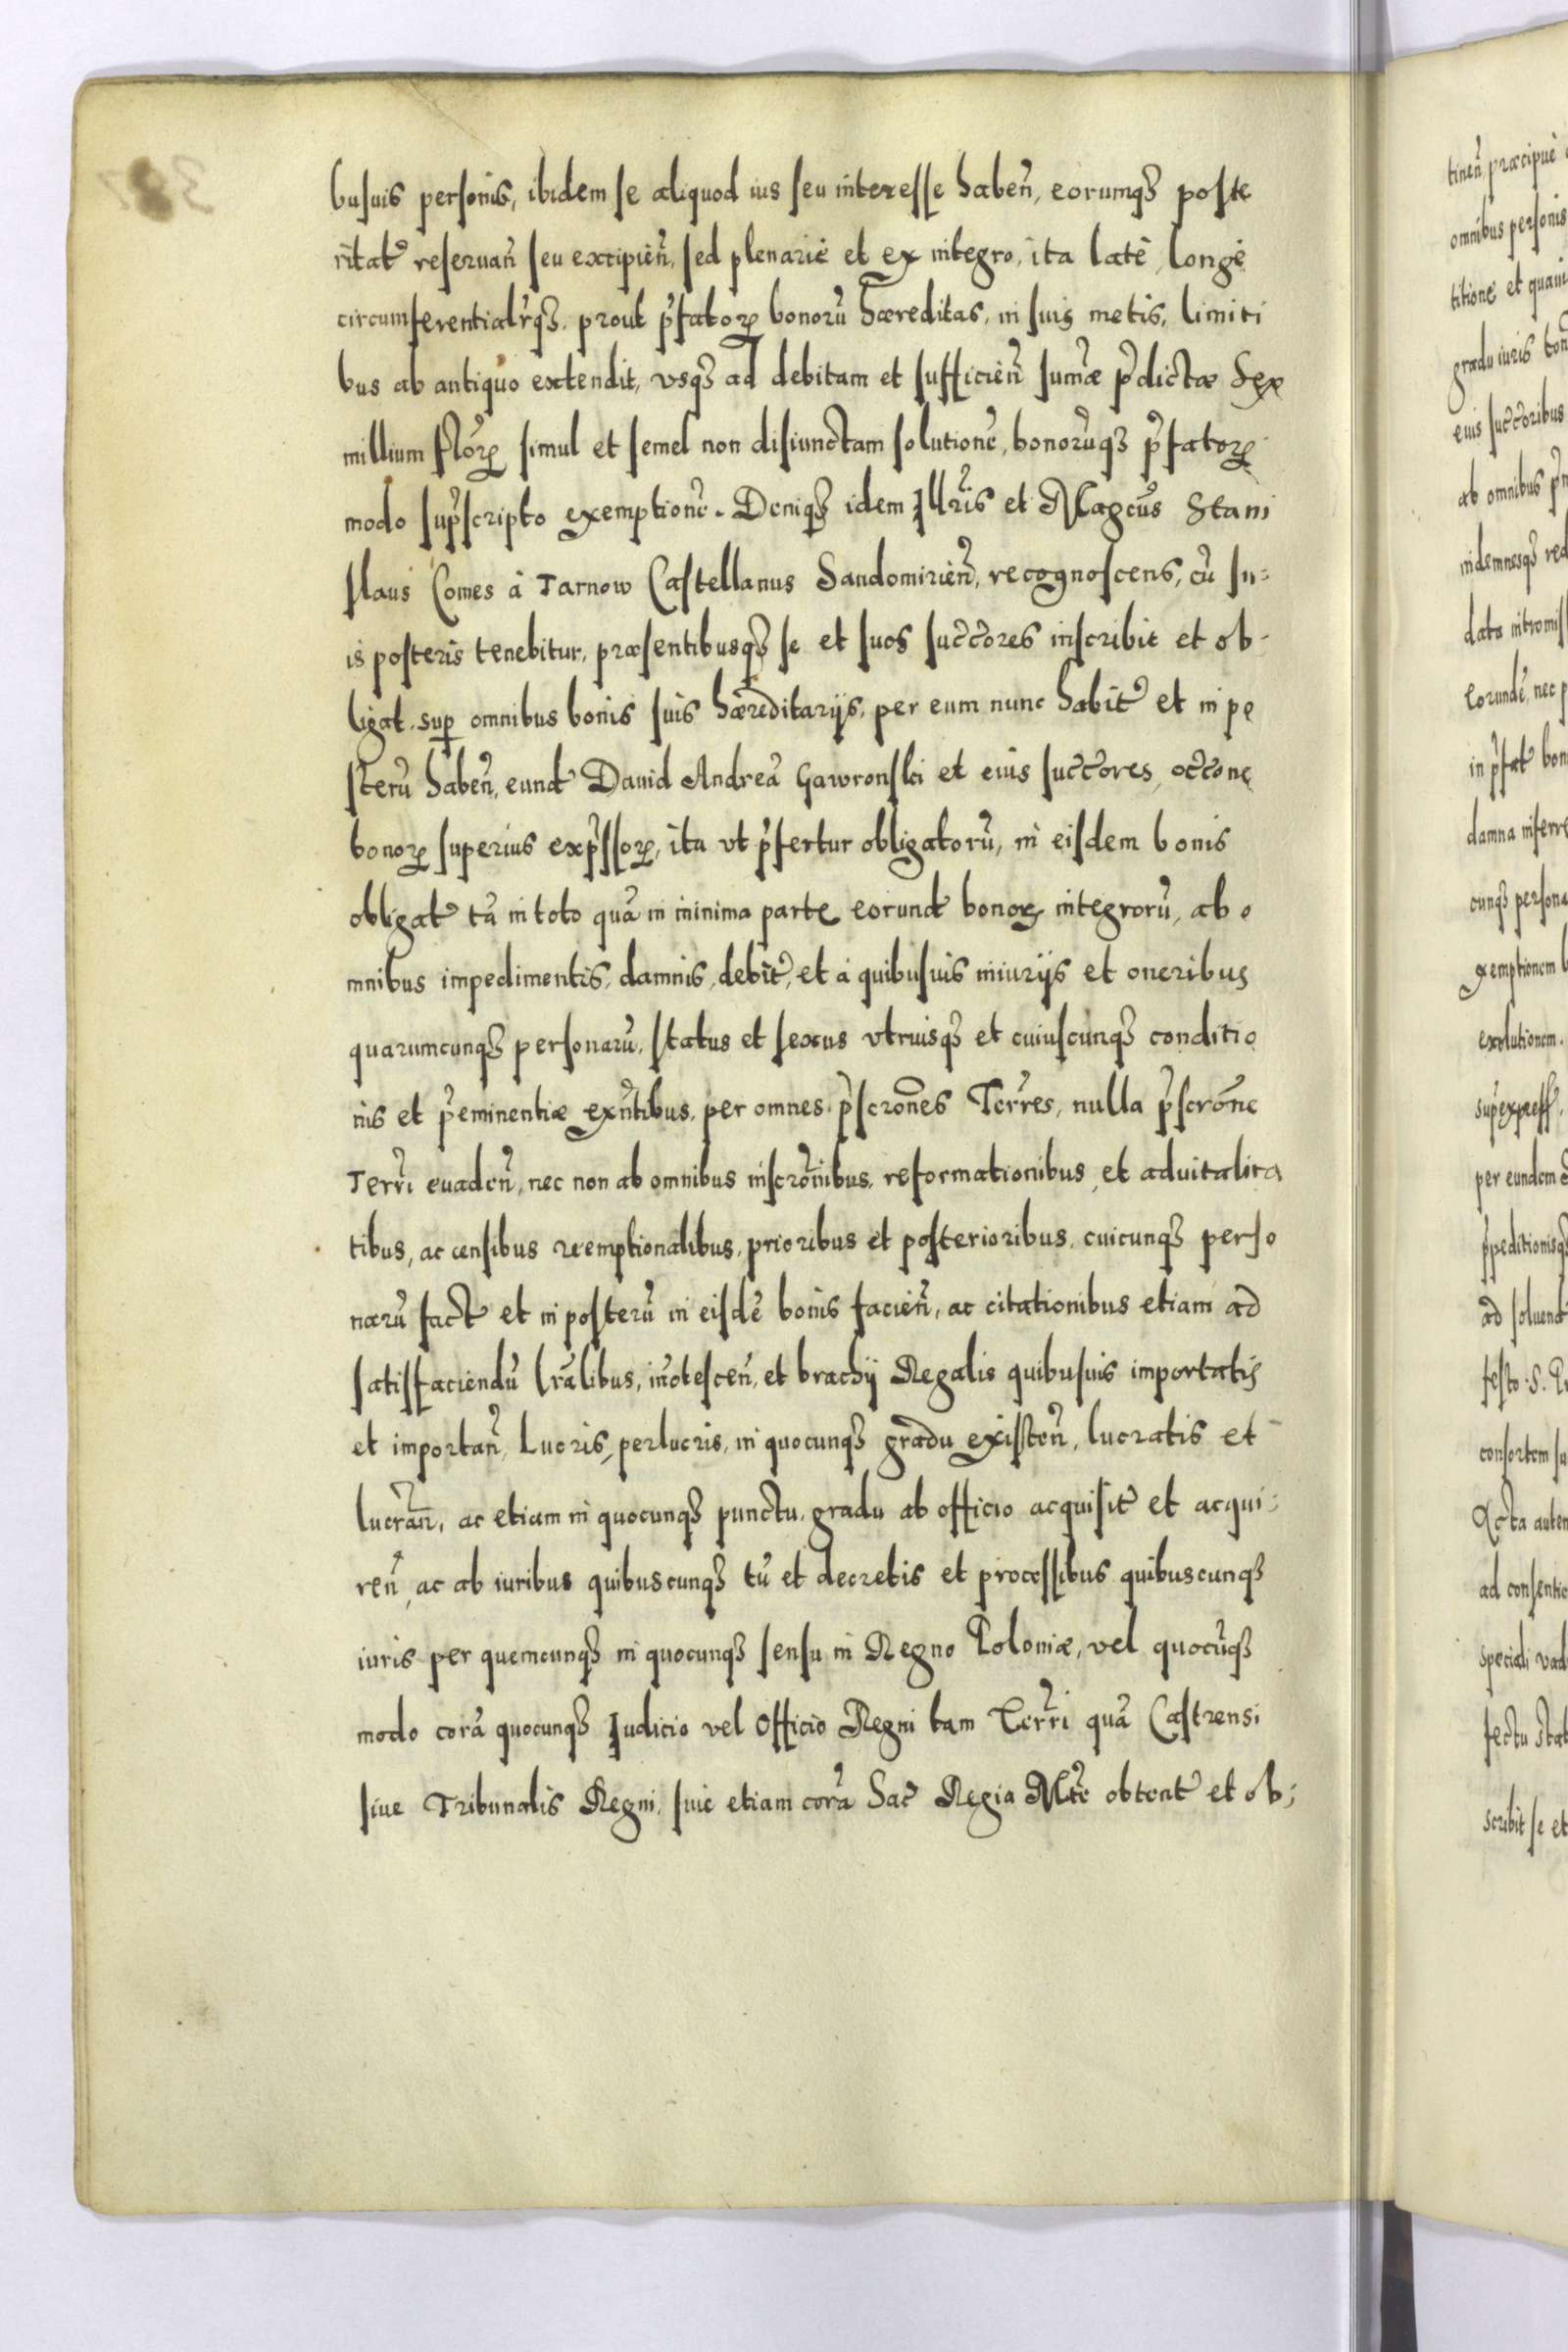 busuis personis, ibidem se aliquod ius seu interesse haben̄, eorumqȝ poste
ritat' reseruan̄ seu excipien̄, sed plenarie et ex integro, ita latè, longè
circumferentialr̃qȝ, prout p̃fatoꝝ bonorũ hæreditas, in suis metis, limiti
bus ab antiquo extendit, vsqȝ ad debitam et sufficien̄ sum̃æ p̃dictæ Sex
millium flõrꝝ simul et semel non disiunctam solutionẽ, bonorũqȝ p̃fatoꝝ
modo sup̃scripto exemptionẽ. Deniqȝ idem Illr̃is et Magcũs Stani
slaus Comes à Tarnow Castellanus Sandomirien̄, recognoscens, cũ su=
is posteris tenebitur, præsentibusqȝ se et suos succ̃ores inscribit et ob-
ligat. suꝑ omnibus bonis suis hæreditarijs, per eum nunc habit' et in po
sterũ haben̄, eund' Dauid Andreã Gawronski et eius succ̃ores, occ̃one
bonoꝝ superius exp̃ssoꝝ, ita vt p̃fertur obligatorũ, in eisdem bonis
obligat' tã in toto quã in minima parte eorund' bonoꝝ integrorũ, ab o
mnibus impedimentis, damnis, debit', et à quibusuis iniurijs et oneribus
quarumcunqȝ personarũ, status et sexus vtriusqȝ et cuiuscunqȝ conditio
nis et p̃eminentiæ exñtibus, per omnes p̃scrõnes Terr̃es, nulla p̃scrõne
Terr̃i euaden̄, nec non ab omnibus inscrõnibus, reformationibus, et aduitalita
tibus, ac censibus reemptionalibus, prioribus et posterioribus, cuicunqȝ perso
narũ fact' et in posterũ in eisdẽ bonis facien̄, ac citationibus etiam ad
satisfaciendũ lr̃alibus, iñotescen̄, et brachij Regalis quibusuis importatis
et importan̄, Lucris, perlucris, in quocunqȝ gradu existen̄, lucratis et
lucran̄, ac etiam in quocunqȝ punctu, gradu ab officio acquisit' et acqui=
ren̄, ac ab iuribus quibuscunqȝ tũ et decretis et processibus quibuscunqȝ
iuris per quemcunqȝ in quocunqȝ sensu in Regno Poloniæ, vel quocũqȝ
modo corã quocunqȝ Judicio vel Officio Regni tam Terr̃i quã Castrensi
siue Tribunalis Regni, siue etiam corã Sac̃ Regia Mt̃e obtent' et ob=
tinen̄ præcipuè
omnibus personis
titione et quaui
gradu iuris
eius succ̃oribus
ab omnibus
indemnesqȝ red
data intromis
eorundẽ, nec
in p̃fat' bon
damna inferre
cunqȝ persona
exemptionem
exolutionem.
sup̃express.
per eundem
ad soluend'
festo S.
consortem su
Acta autem
ad consentie
speciali vad
fectu stat
scribit se et